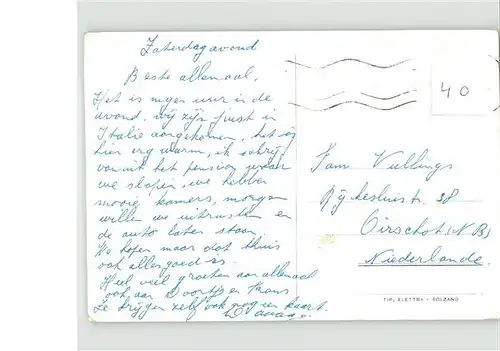 Zaterdagavond
Beste allemaal,
Het is negen uur in de
avond, wij zijn juist in
Italie aangekomen, het is
hier erg warm, ik schrijf
vanuit het pension waar
we slapen, we hebben
mooie kamers, morgen
willen we uitrusten en
de auto laten staan.
We hopen maar dat thuis
ook alles goed is.
Heel veel groeten aan allemaal
ook aan Doortje en Hans
Ze krijgen zelf ook nog een kaart.
40
Fam Vullings
38
Oirschot (N.B)
Niederlande.
TIP. ELETTRA - BOLZANO